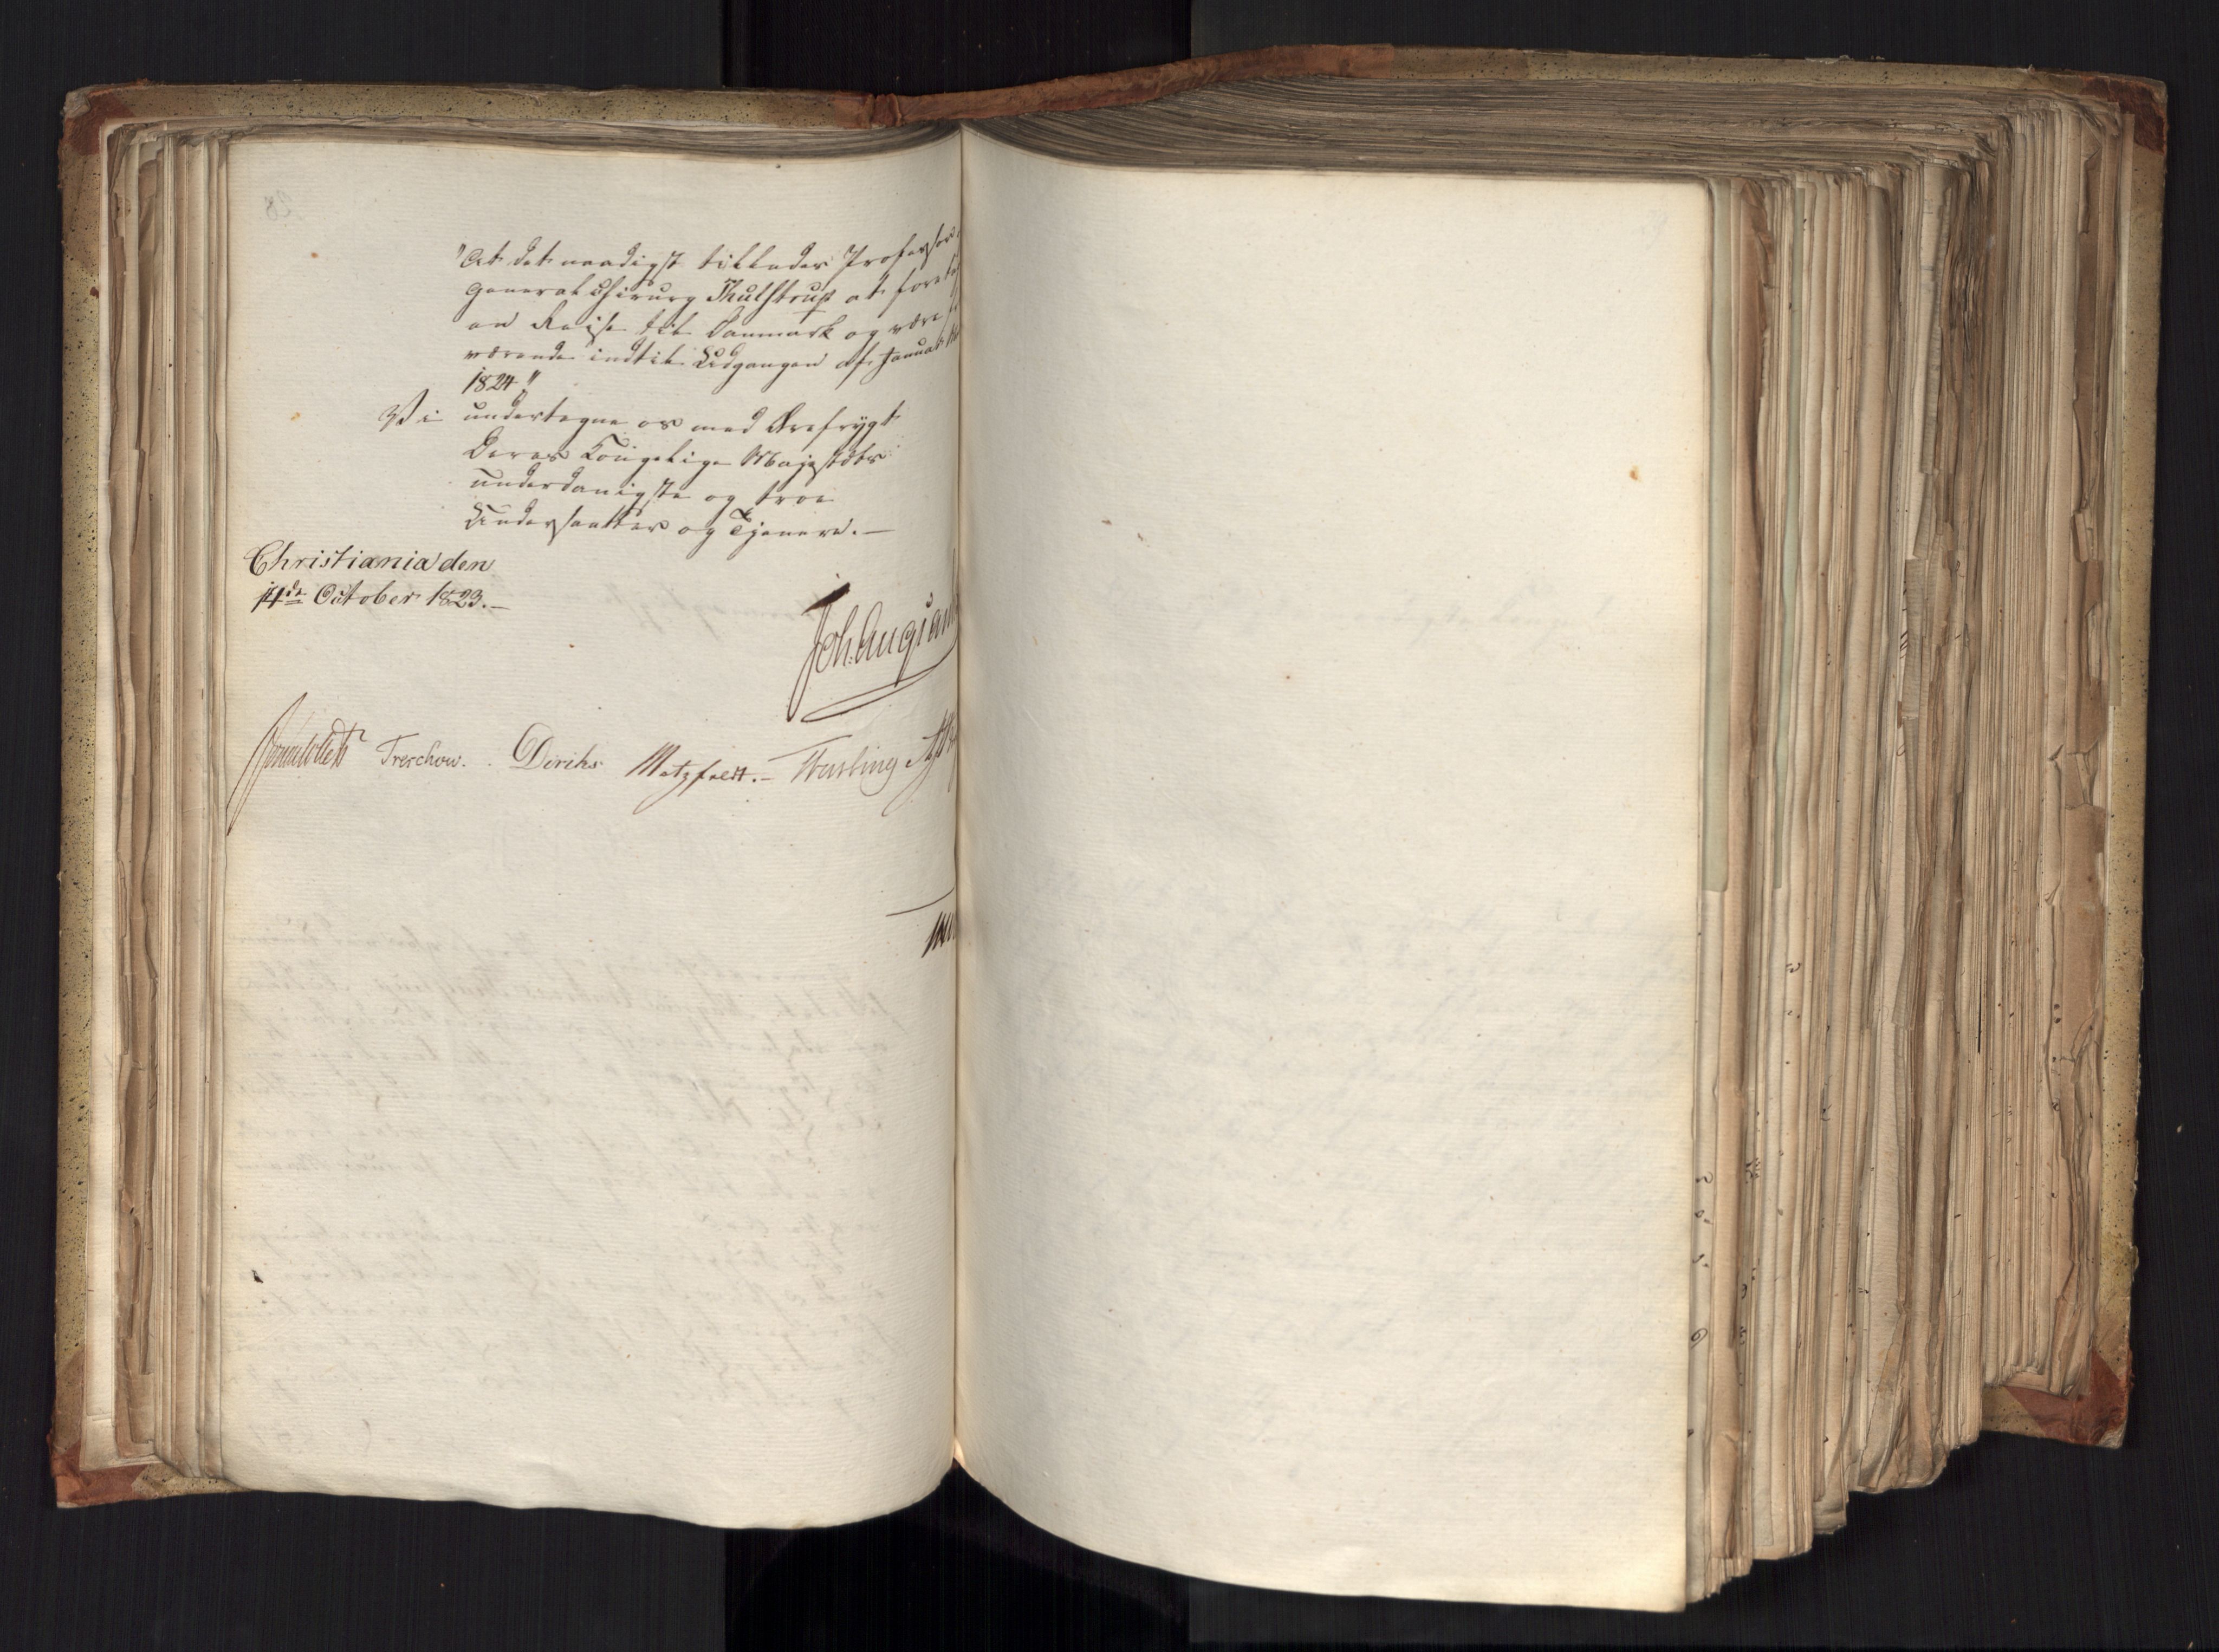 "At det naadigst tillades Professor
Generalchirurg Thulstrup at foretag
en Reise til Danmark og være fra
værende indtil Udgangen af Januar
1824"
Vi undertegne os med Ærefrygt
Deres Kongelige Majestæts
underdanigste og troe
Undersaatter og Tjenere.—
Christiania den
14de October 1823.—
Joh. Aug: Sand
Sommerhielm Treschow. Diriks Motzfeldt.—